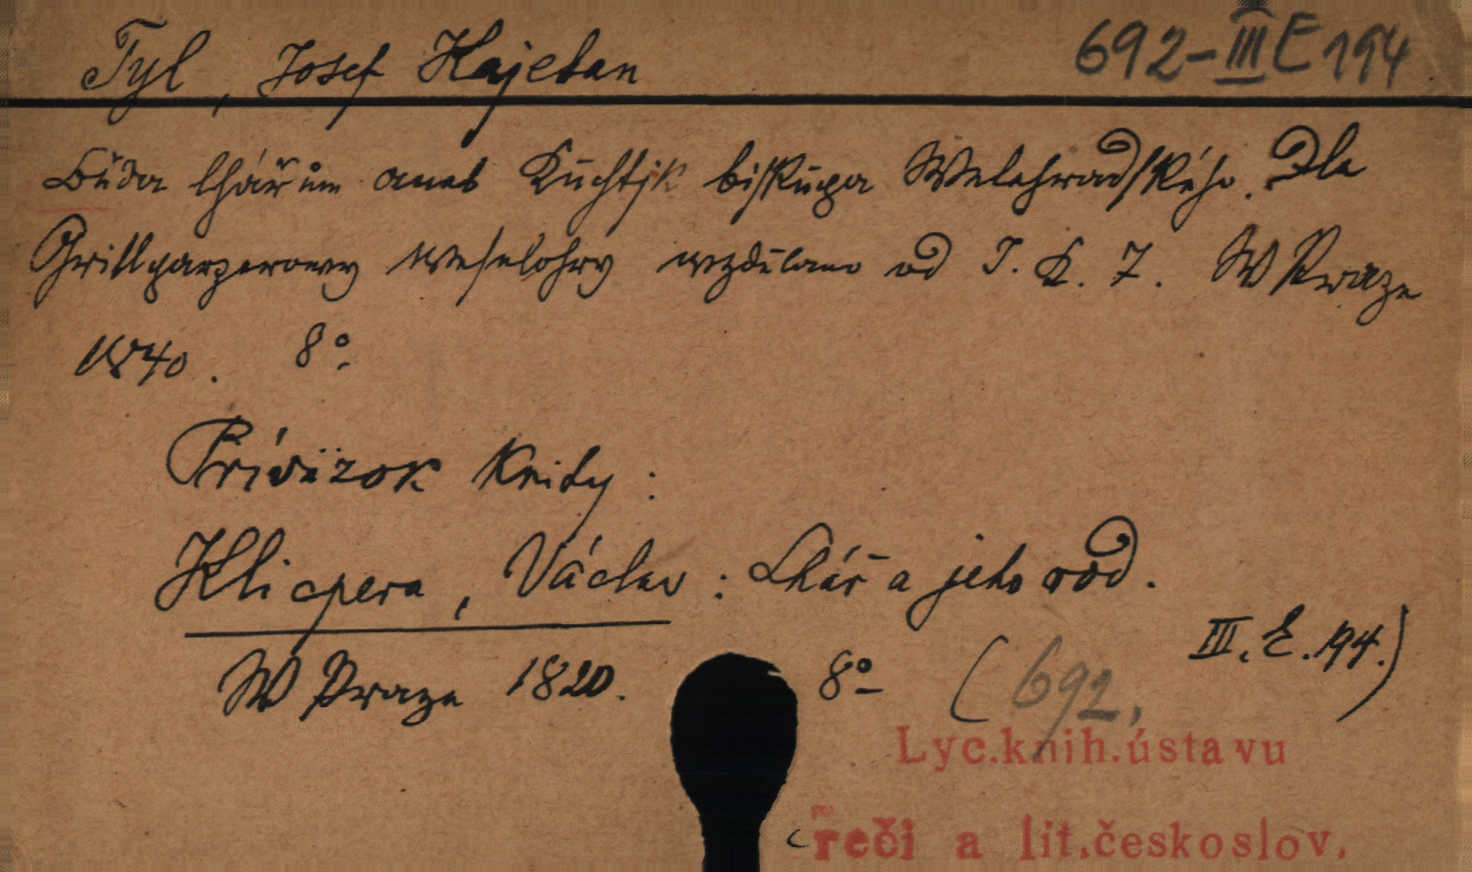 Tyl, Josef Kajetan
692-III E 194
Běda lhářům aneb Kuchtjk biskupa Welehradského. Dle
Grillparzerowy weselohry wzděláno od J. K. T. W Praze
1840. 8°
Prívïzok knihy:
Klicpera, Václav: Lhář a jeho rod.
W Praze 1820. 8° (692, III. E. 194.)
Lyc.knih.ústavu
řeči a lit.českoslov.